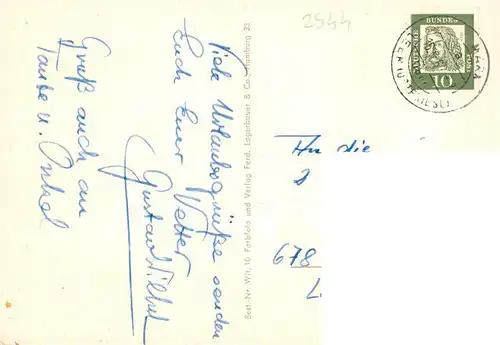 Viele Urlaubsgrüße senden
Euch Euer Vetter
Gustav
Gruß auch an
Tante u. Onkel
Best.-Nr. Wit. 10 Farbfoto und Verlag Ferd. Lagerbauer & Co. Hamburg 23
2544
DEUTSCHE BUNDESPOST
10
An die
678
L